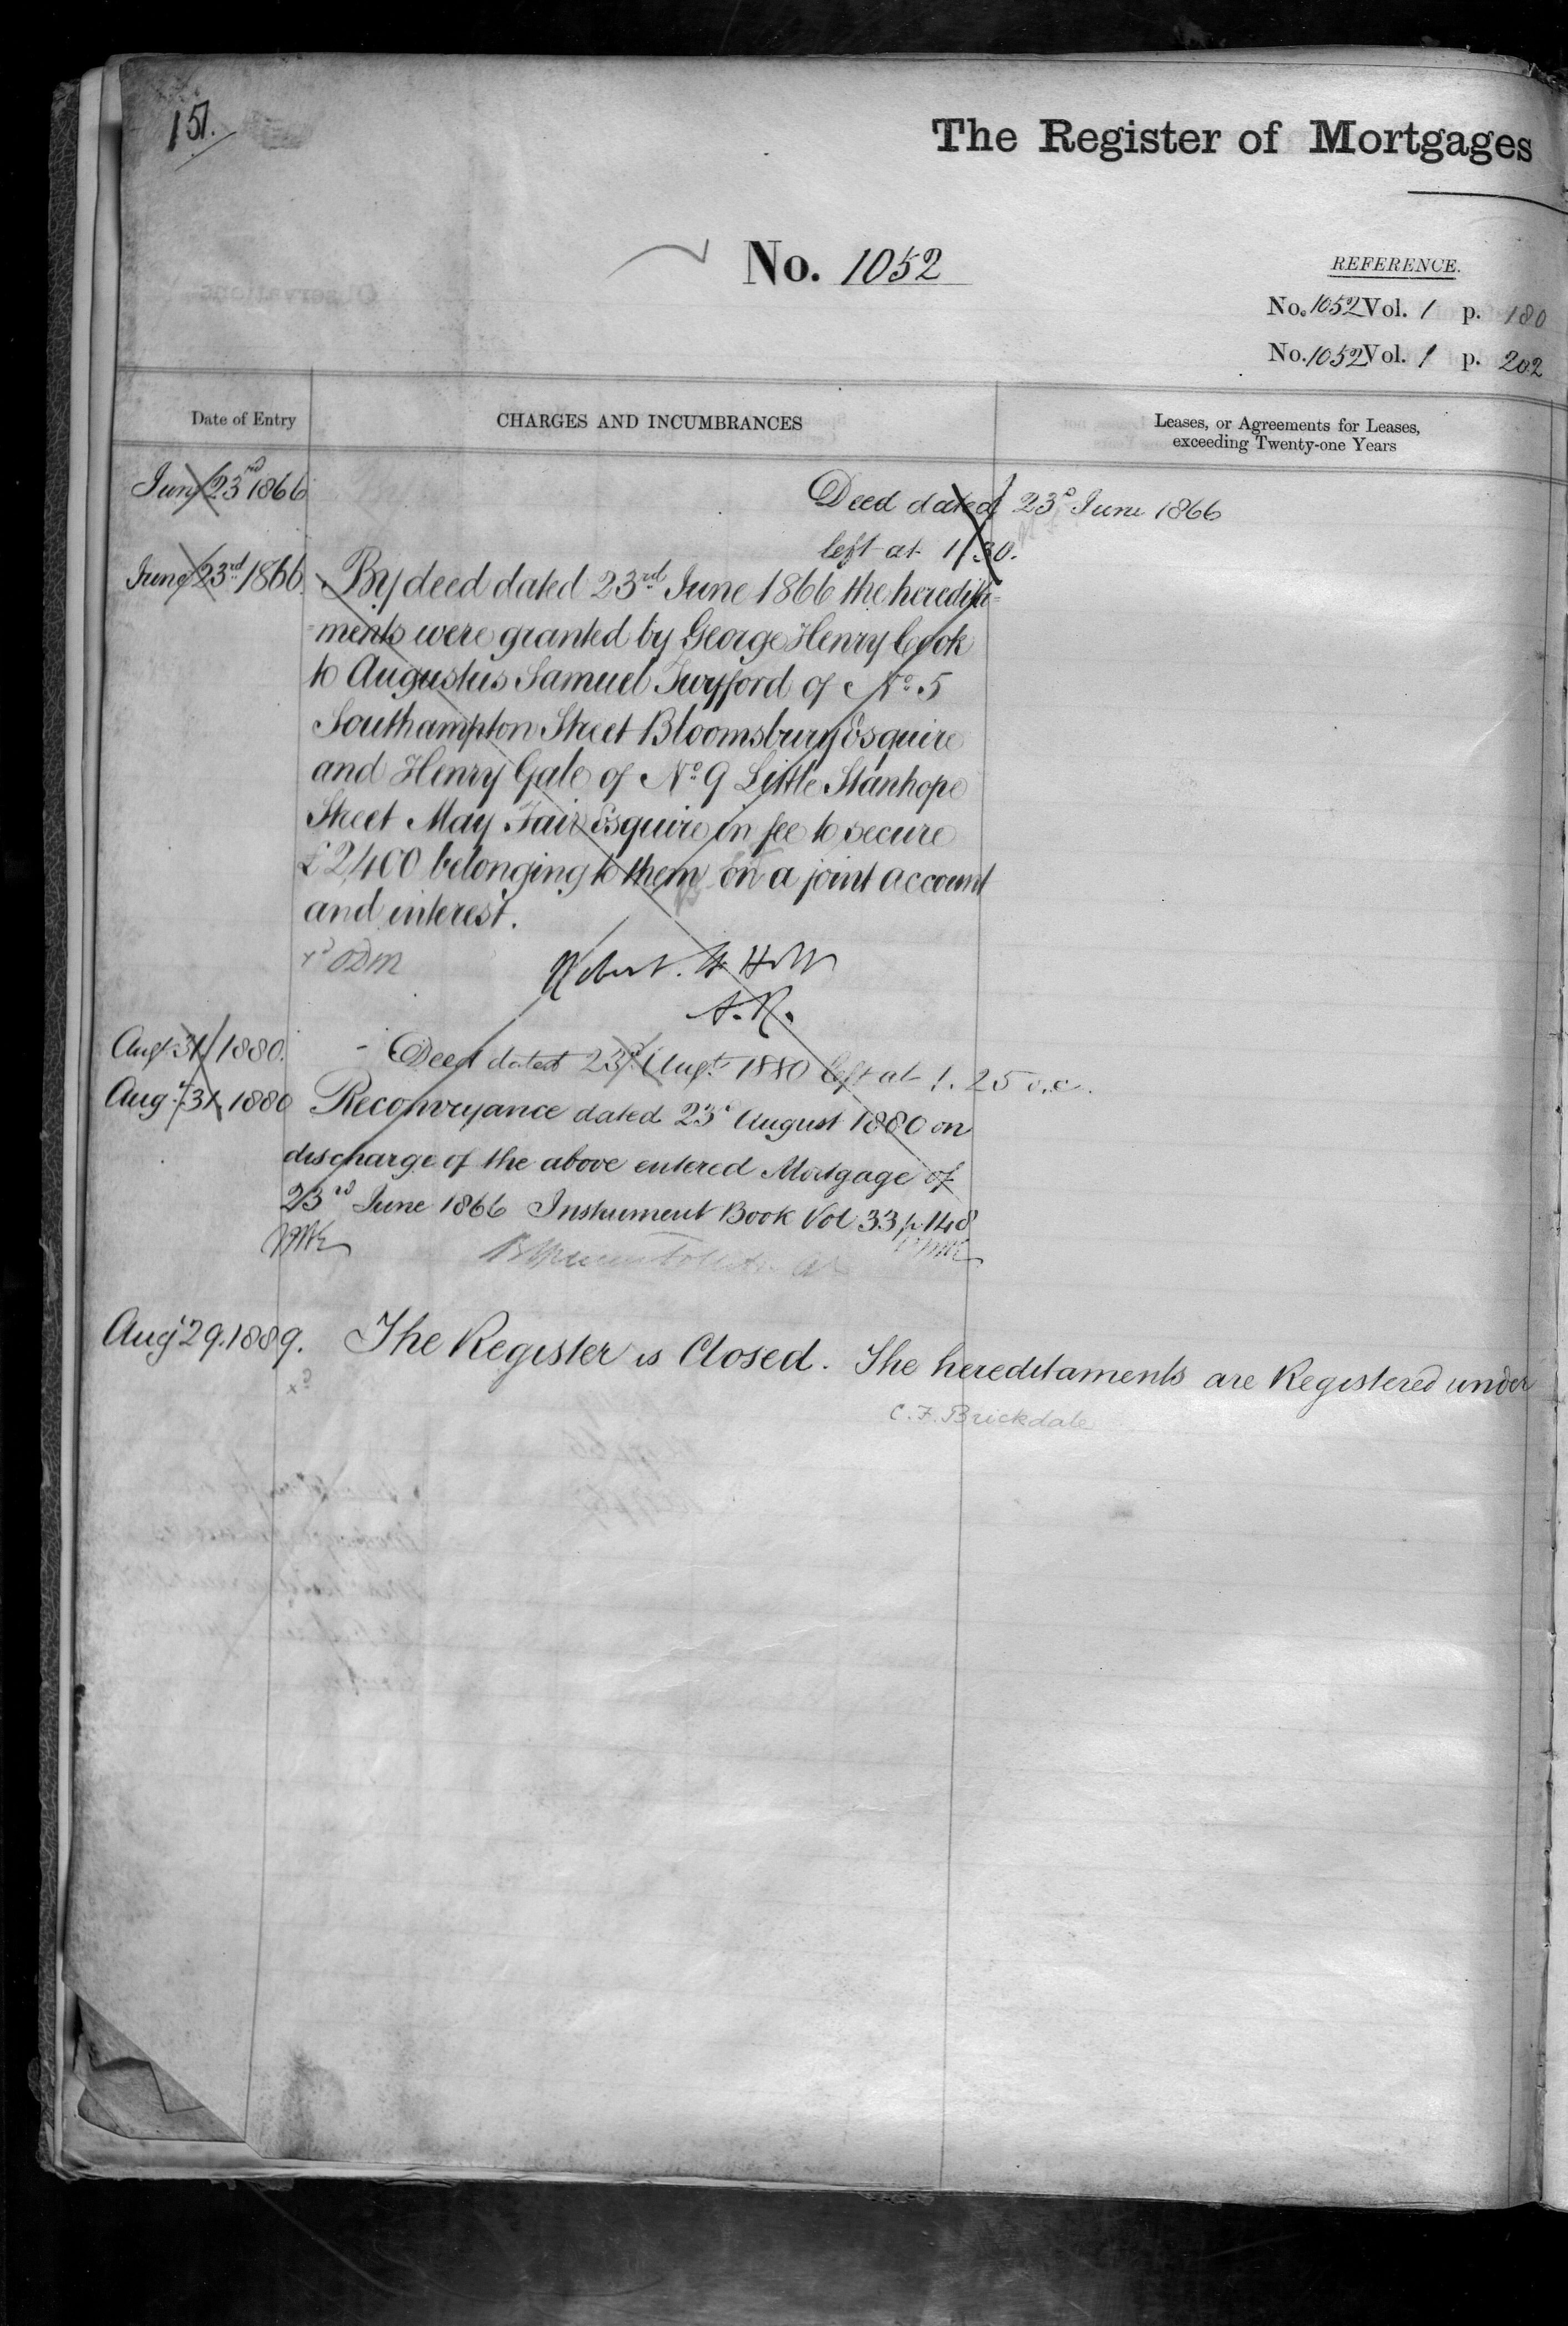 151.
The Register of Mortgages
No. 1052
REFERENCE.
No. 1052 Vol. 1 p. 180
No. 1052 Vol. 1 p. 202
Date of Entry
CHARGES AND INCUMBRANCES
Leases, or Agreements for Leases,
exceeding Twenty-one Years
June 23rd 1866
Deed dated 23d June 1866
left at 1/30.
June 23rd 1866.
By deed dated 23rd June 1866 the heredita=
=ments were granted by George Henry Cook
to Augustus Samuel Twyford of No. 5
Southampton Street Bloomsbury Esquire
and Henry Gale of No. 9 Little Stanhope
Street May Fair Esquire in fee to secure
£2,400 belonging to them on a joint account
and interest.
Robert. H. Holt
A.R.
Augt 31/1880.
- Deed dated 23d Augt 1880 left at 1.25 o.c.
Augt 31, 1880
Reconveyance dated 23d August 1880 on
discharge of the above entered Mortgage of
23rd June 1866 Instrument Book Vol 33 p. 148
Augt 29. 1889.
The Register is Closed. The hereditaments are Registered under
C. F. Brickdale